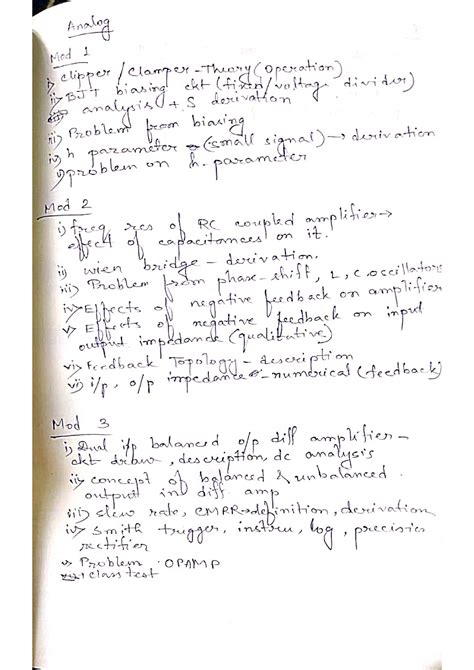 Analog
Mod 1
i) clipper / Clamper - Theory (Operation)
ii) BJT biasing ckt (fixed/voltage divider)
analysis + S derivation
iii) Problem from biasing
iv) h parameter (small signal) → derivation
v) problem on h. parameter
Mod 2
i) freq res of RC coupled amplifier →
effect of capacitances on it.
ii) wien bridge - derivation.
iii) Problem from phase-shift, L, C oscillators
iv) Effects of negative feedback on amplifier
v) Effects of negative feedback on input
output impedance (qualitative)
vi) Feedback Topology - description
vi) i/p, o/p impedance - numerical (feedback)
Mod 3
i) Dual i/p balanced o/p diff amplifier -
ckt draw, description, dc analysis
ii) concept of balanced & unbalanced
output in diff. amp
iii) slew rate, CMRR → definition, derivation
iv) smith trigger, instru, log, precision
rectifier
v) Problem OPAMP
class test